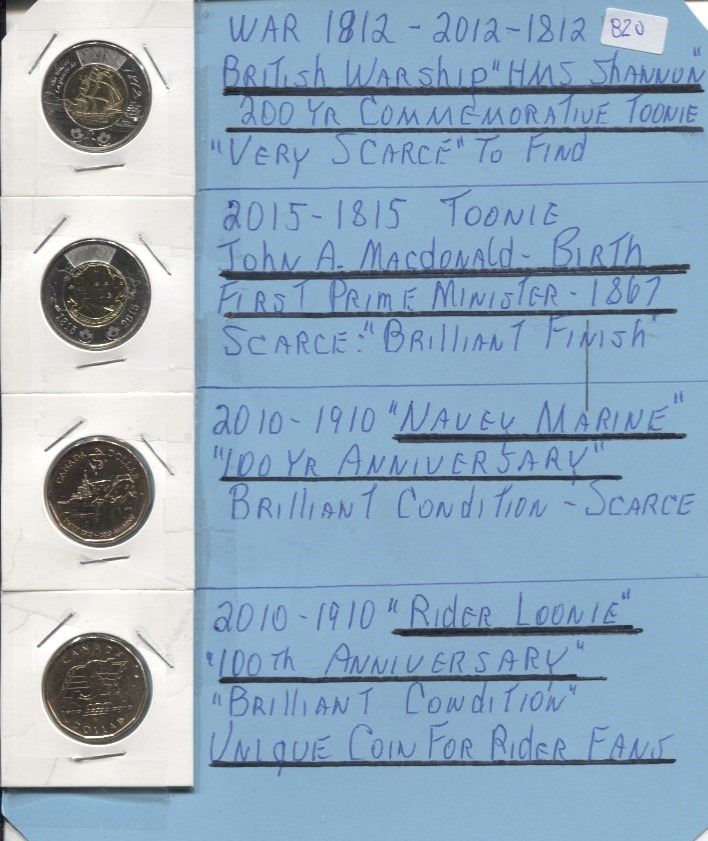 WAR 1812 - 2012-1812
820
BRITISH WARSHIP "HMS SHANNON"
200 YR COMMEMORATIVE TOONIE
"VERY SCARCE" TO FIND
2015-1815 TOONIE
JOHN A. MACDONALD - BIRTH
FIRST PRIME MINISTER - 1867
SCARCE: "BRILLIANT FINISH"
2010-1910 "NAVEY MARINE"
"100 YR ANNIVERSARY"
BRILLIANT CONDITION - SCARCE
CANADA DOLLAR
2010-1910 "RIDER LOONIE"
"100TH ANNIVERSARY"
"BRILLIANT CONDITION"
UNIQUE COIN FOR RIDER FANS
CANADA
DOLLAR